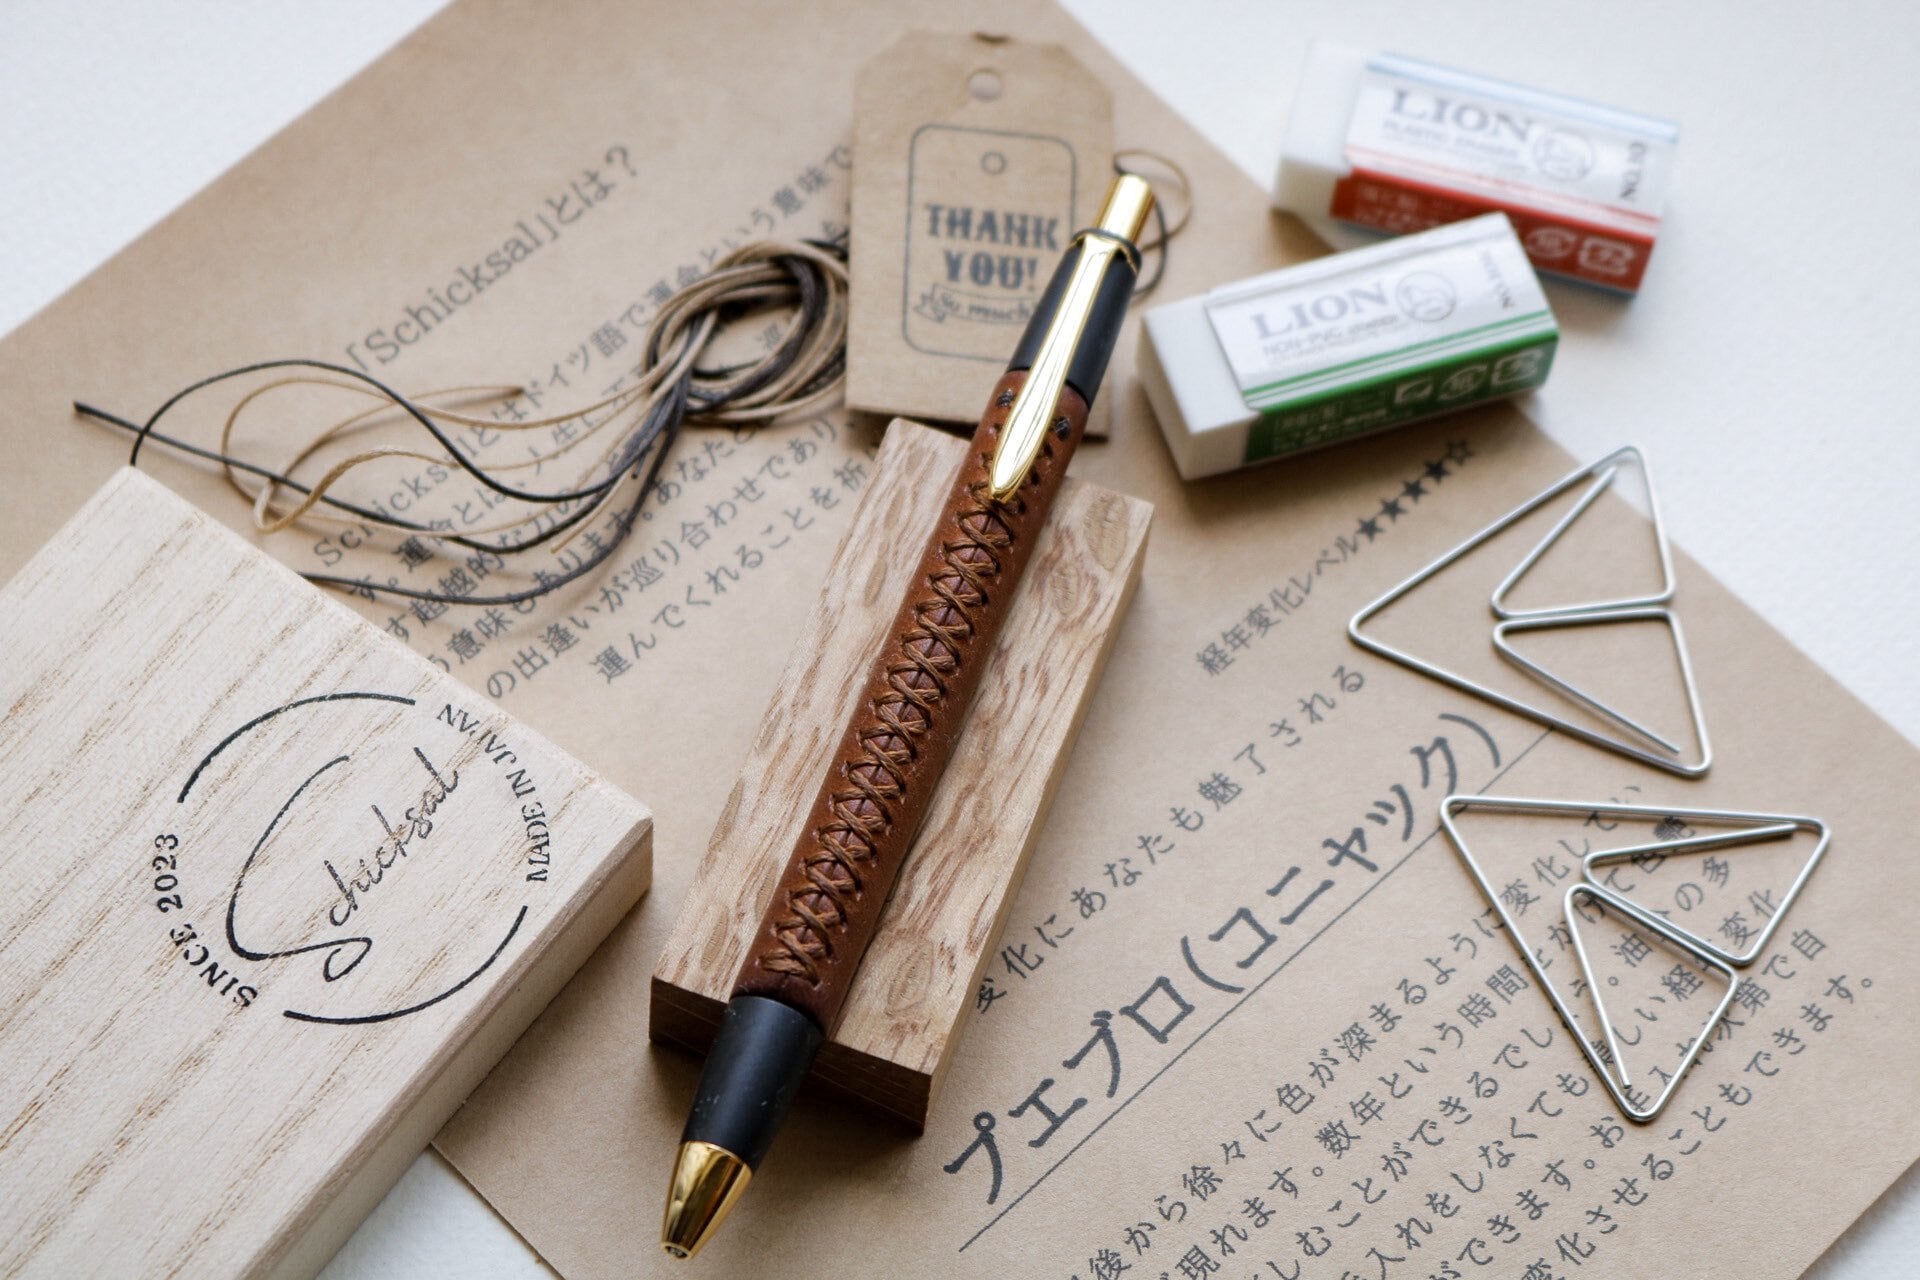 「Schicksal」とは？
Schicksalとはドイツ語で運命という意味で
す。運命とは、人生に
す超越的な力の
意味もあります。あなたと
の出逢いが巡り合わせであり
運んでくれることを祈
THANK
YOU!
So much!
LION
PLASTIC ERASER
LION
LION
NON-PVC ERASER
Schicksal
SINCE 2023
MADE IN JAPAN
経年変化レベル★★★★☆
変化にあなたも魅了される
プエブロ(コニャック)
後から徐々に色が深まるように変化してい
現れます。数年という時間をかけて色艶
しむことができるでしょう。油分の多
手入れをしなくても美しい経年変化
ができます。お手入れ次第で自
変化させることもできます。